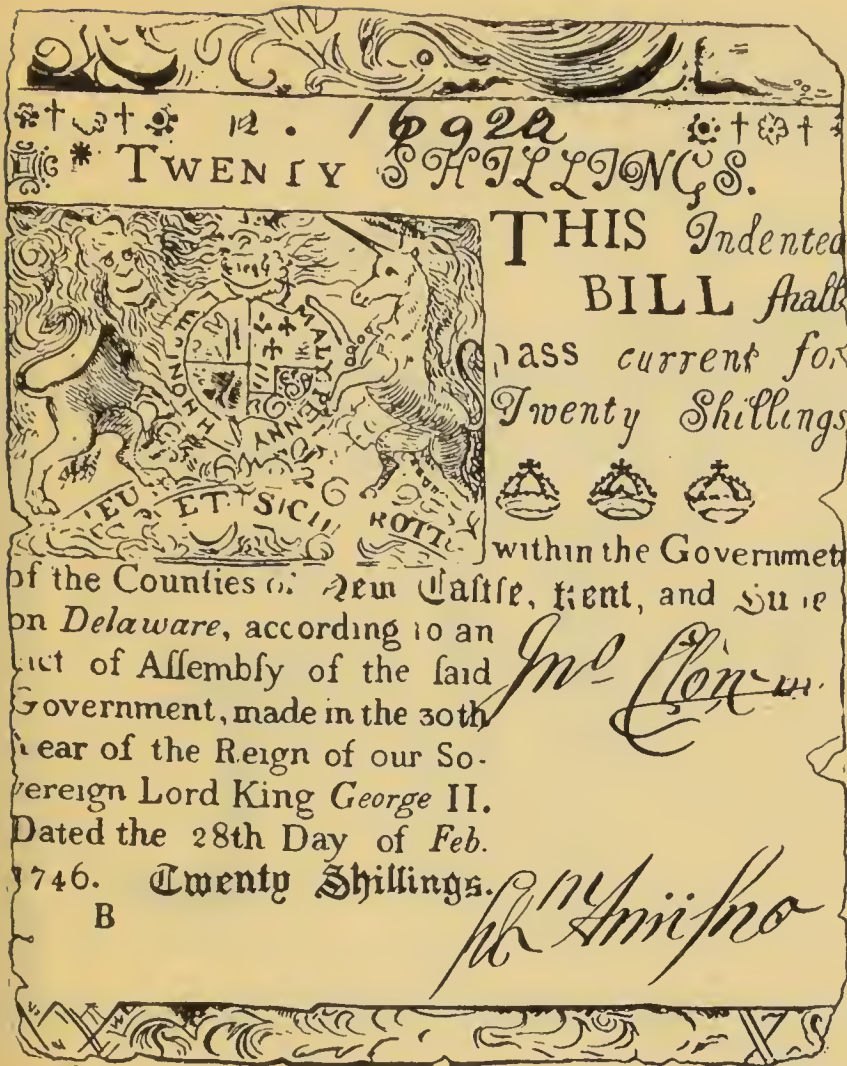 16922
TWENTY SHILLINGS.
THIS Indented
BILL ſhall
pass current for
Twenty Shillings
HONI MAL Y PENNY
ET
within the Governmet
of the Counties of New Caſtle, Kent, and
on Delaware, according to an
Act of Aſſembly of the ſaid
Government, made in the 30th
Year of the Reign of our So-
vereign Lord King George II.
Dated the 28th Day of Feb.
1746. Twenty Shillings.
B
Jnº